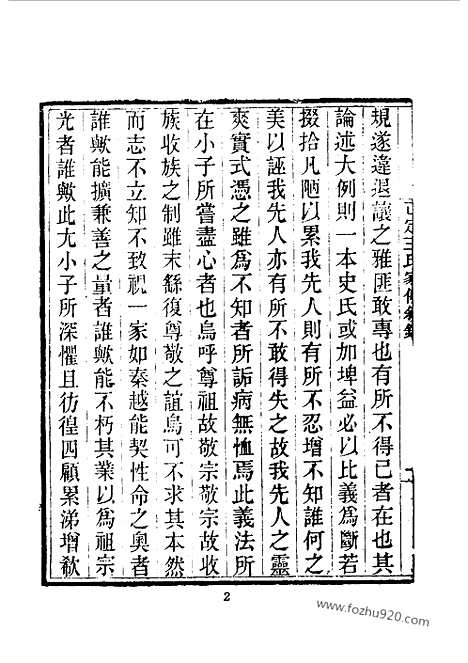 規遂違退議之雅匪敢專也有所不得已者在也其
論述大例則一本史氏或加埤益必以比義爲斷若
掇拾凡陋以累我先人則有所不忍增不知誰何之
美以誣我先人亦有所不敢得失之故我先人之靈
爽實式憑之雖爲不知者所詬病無恤焉此義法所
在小子所嘗盡心者也烏呼尊祖故敬宗敬宗故收
族收族之制雖未繇復尊敬之誼烏可不求其本然
而志不立知不致視一家如秦越能契性命之奧者
誰歟能擴兼善之量者誰歟能不朽其業以爲祖宗
光者誰歟此尢小子所深懼且彷徨四顧累涕增欷
2
www.fozhu920.com